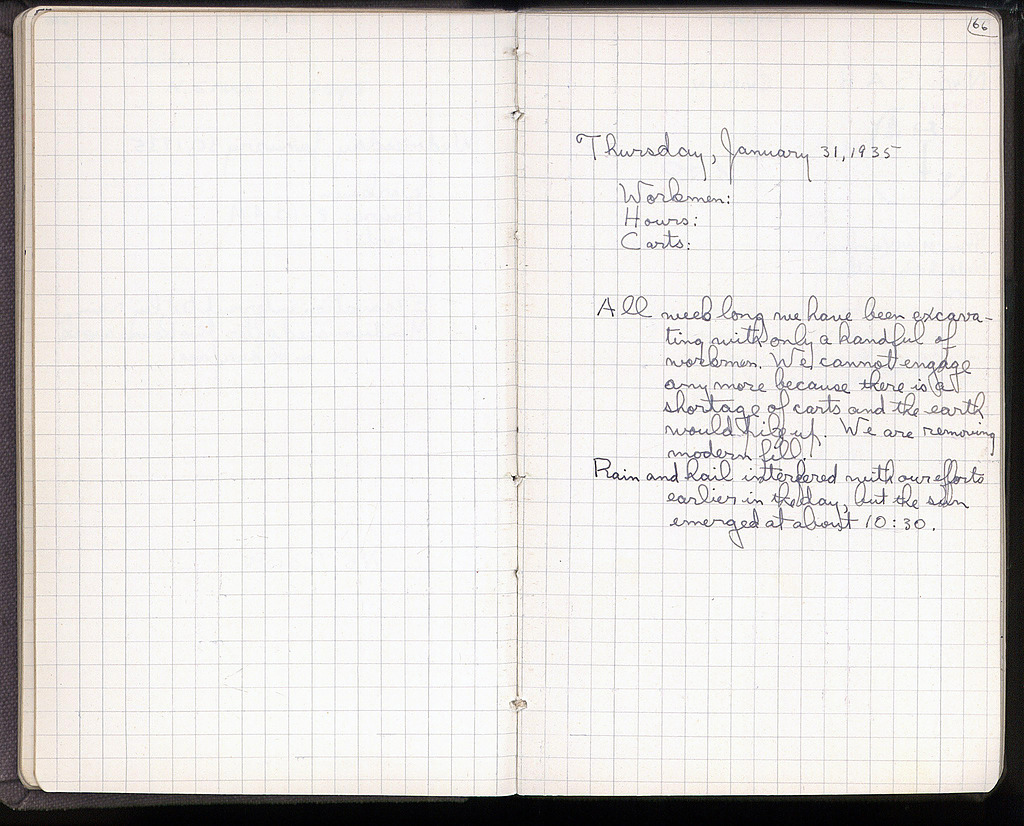 66
Thursday, January 31, 1935
Workmen:
Hours:
Carts:
All week long we have been excava-
ting with only a handful of
workmen. We cannot engage
any more because there is a
shortage of carts and the earth
would pile up. We are removing
modern fill.
Rain and hail interfered with our efforts
earlier in the day, but the sun
emerged at about 10:30.